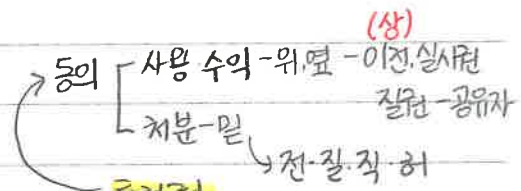 (상)
동의 사용 수익-위.옆-이전.실시권
질권-공유자
처분-밑
전·질·직·허